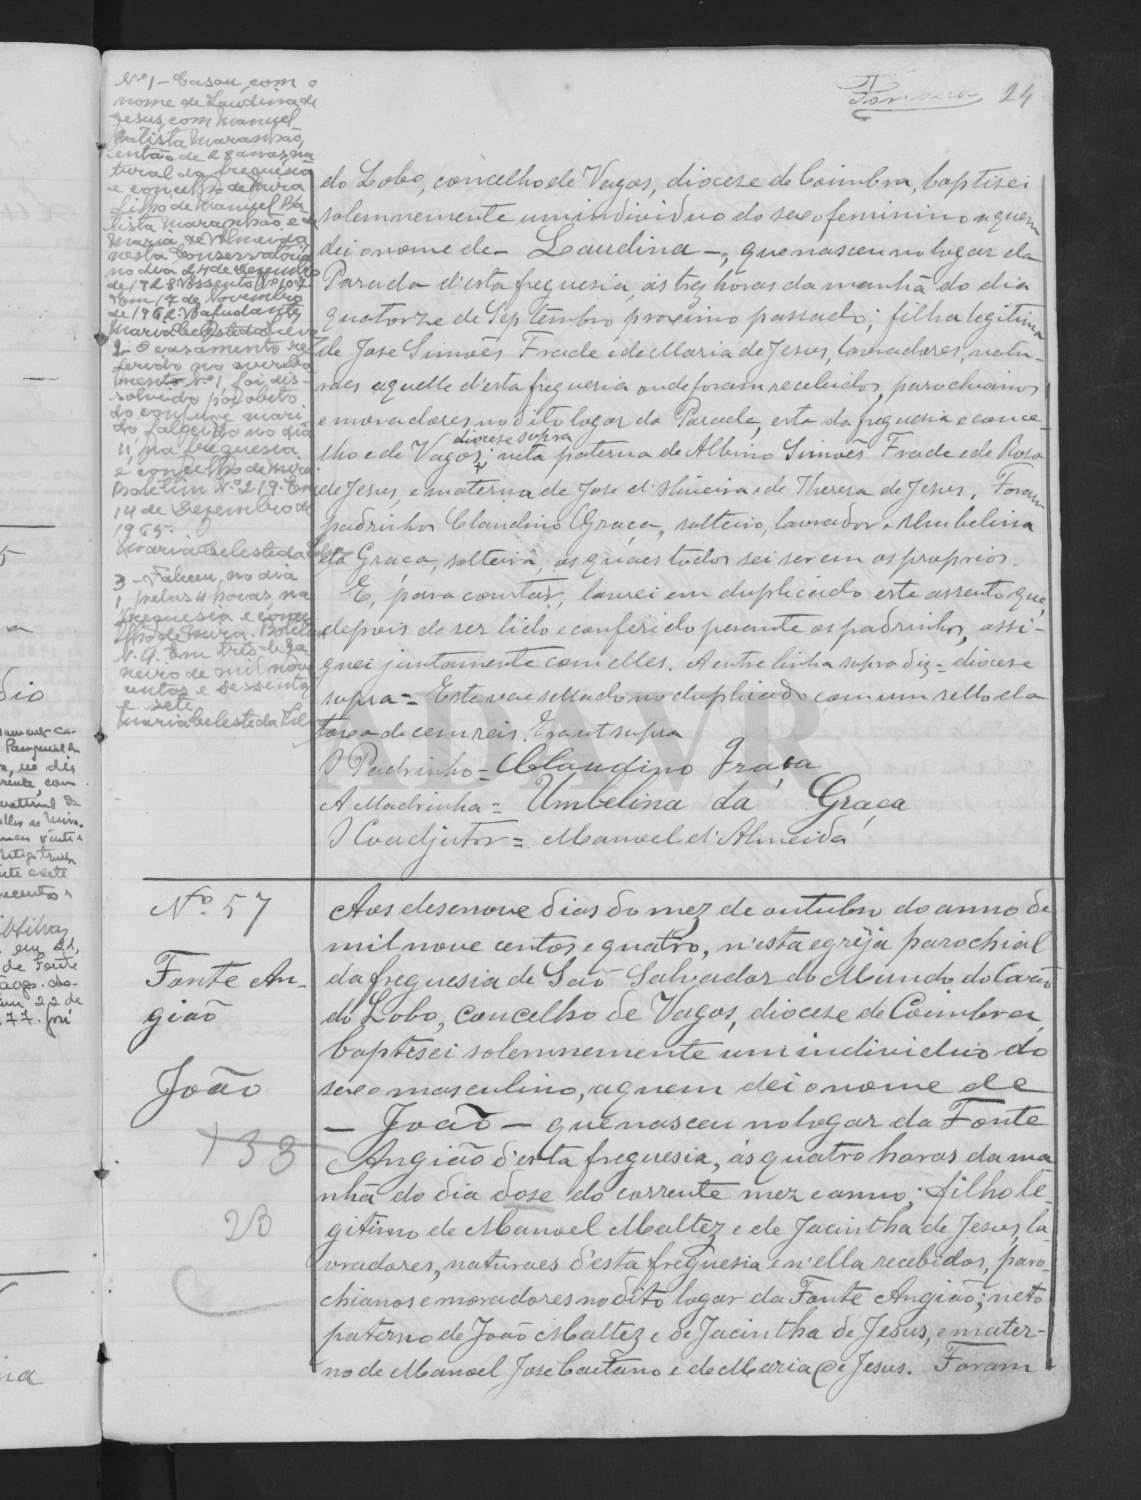 24
Nº 1 – Casou, com o
nome de Laudina de
Jesus, com Manuel
Batista Maranhão,
então de 28 anos, na
tural da freguesia
e concelho de Mira
filho de Manuel Ba
tista Maranhão e de
Maria de Almeida,
nesta Conservatória
no dia 24 de Dezembro
de 1928. Assento Nº 107
Em 17 de Novembro
de 1962. A ajudante,
Maria Celeste da
2 – O casamento re
ferido no averba
mento Nº 1, foi dis-
solvido por óbito
do conjuge mari
do, falecido no dia
11, na freguesia
e concelho de Mira
Boletim Nº 219. Em
14 de Dezembro de
1965.
Maria Celeste da
3 – Faleceu, no dia
1, pelas 4 horas, na
freguesia e conce
lho de Mira. Boletim
N. 9. Em tres de Ja
neiro de mil nove
centos e sessenta
e sete
Maria Celeste da
do Lobo, concelho de Vagos, diocese de Coimbra, baptisei
solemnemente um individuo do sexo feminino a quem
dei o nome de – Laudina –, que nasceu no logar da
Parada d'esta freguesia, ás tres horas da manhã do dia
quatorze de Septembro proximo passado; filha legitima
de José Simões Frade e de Maria de Jesus, lavradores, natu-
raes aquelle d'esta freguesia onde foram recebidos, parochianos
e moradores no dito logar da Parada, esta da freguesia e conce-
diocese supra
lho e de Vagos; neta paterna de Albino Simões Frade e de Rosa
de Jesus, e materna de José d'Oliveira e de Theresa de Jesus. Foram
padrinhos Claudino Graça, solteiro, lavrador e Umbelina
da Graça, solteira, os quaes todos sei serem os proprios.
E, para constar, lavrei em duplicado este assento que,
depois de ser lido e conferido perante os padrinhos, assi-
gnei juntamente com elles. A entrelinha supra diz = diocese
supra = Este vae sellado no duplicado com um sello da
taxa de cem reis. Era ut supra
O Padrinho = Claudino Graça
A Madrinha = Umbelina da Graça
O Coadjutor = Manoel d'Almeida
Nº 57
Fonte An-
gião
João
133
23
Aos desenove dias do mez de outubro do anno de
mil nove centos e quatro, n'esta egreja parochial
da freguesia de São Salvador do Mundo do Covão
do Lobo, concelho de Vagos, diocese de Coimbra,
baptisei solemnemente um individuo do
sexo masculino, a quem dei o nome de
– João – que nasceu no logar da Fonte
Angião d'esta freguesia, ás quatro horas da ma
nhã do dia dose do corrente mez e anno; filho le-
gitimo de Manoel Maltez e de Jacintha de Jesus, la-
vradores, naturaes d'esta freguesia e n'ella recebidos, paro-
chianos e moradores no dito logar da Fonte Angião; neto
paterno de João Maltez e de Jacintha de Jesus, e mater-
no de Manoel José Caetano e de Maria de Jesus. Foram
ADAVR